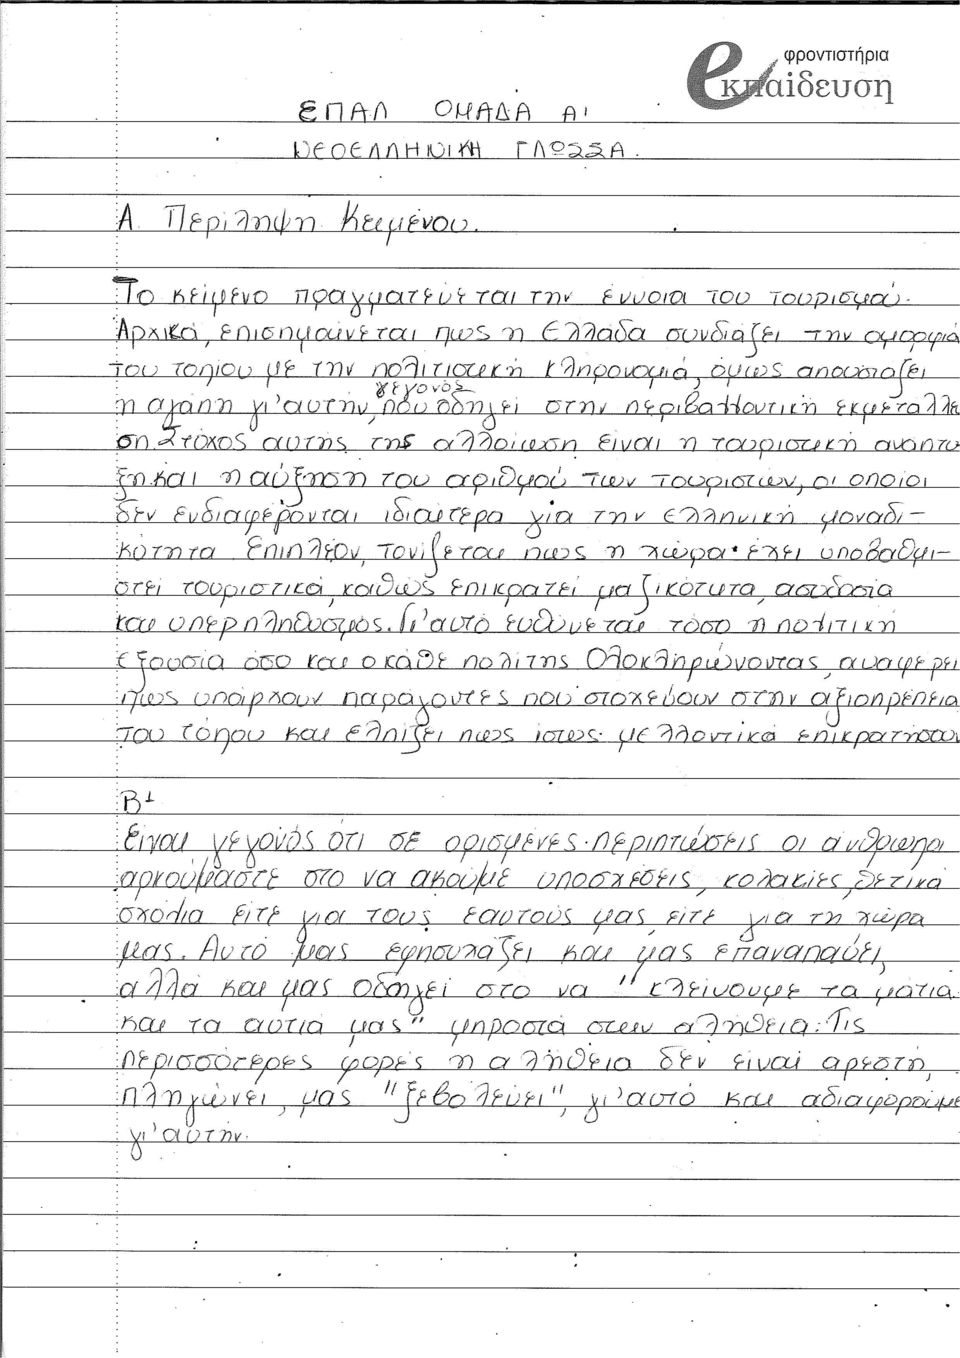 φροντιστήρια
εκπαίδευση
ΕΠΑΛ ΟΜΑΔΑ Α'
ΝΕΟΕΛΛΗΝΙΚΗ ΓΛΩΣΣΑ.
Α. Περίληψη Κειμένου.
Το κείμενο πραγματεύεται την έννοια του τουρισμού.
Αρχικά, επισημαίνεται πως η Ελλάδα συνδιάζει την ομορφιά
του τοπίου με την πολιτιστική κληρονομιά, όμως απουσιάζει
η αγάπη γι'αυτήν, γεγονός που οδηγεί στην περιβαλλοντική εκμετάλλε
ση. Στόχος αυτής της αλλοίωση είναι η τουριστική ανάπτυ
ξη και η αύξηση του αριθμού των τουριστών, οι οποίοι
δεν ενδιαφέρονται ιδιαίτερα για την ελληνική μοναδι-
κότητα. Επιπλέον, τονίζεται πως η χώρα έχει υποβαθμι-
στεί τουριστικά, καθώς επικρατεί μαζικότητα, ασυδοσία
και υπερπληθυσμός. Γι'αυτό ευθύνεται τόσο η πολιτική
εξουσία όσο και ο κάθε πολίτης. Ολοκληρώνοντας, αναφέρει
πως υπάρχουν παράγοντες που στοχεύουν στην αξιοπρέπεια
του τόπου και ελπίζει πως ίσως μελλοντικά επικρατήσουν
Β1
Είναι γεγονός ότι σε ορισμένες περιπτώσεις οι άνθρωποι
αρκούμαστε στο να ακούμε υποσχέσεις, κολακίες, θετικά
σχόλια είτε για τους εαυτούς μας, είτε για τη χώρα
μας. Αυτό μας εφησυχάζει και μας επαναπαύει,
αλλά και μας οδηγεί στο να "κλείνουμε τα μάτια
και τα αυτιά μας" μπροστά στην αλήθεια. Τις
περισσότερες φορές η αλήθεια δεν είναι αρεστή,
πληγώνει, μας "ξεβολεύει", γι'αυτό και αδιαφορούμε
γι'αυτήν.